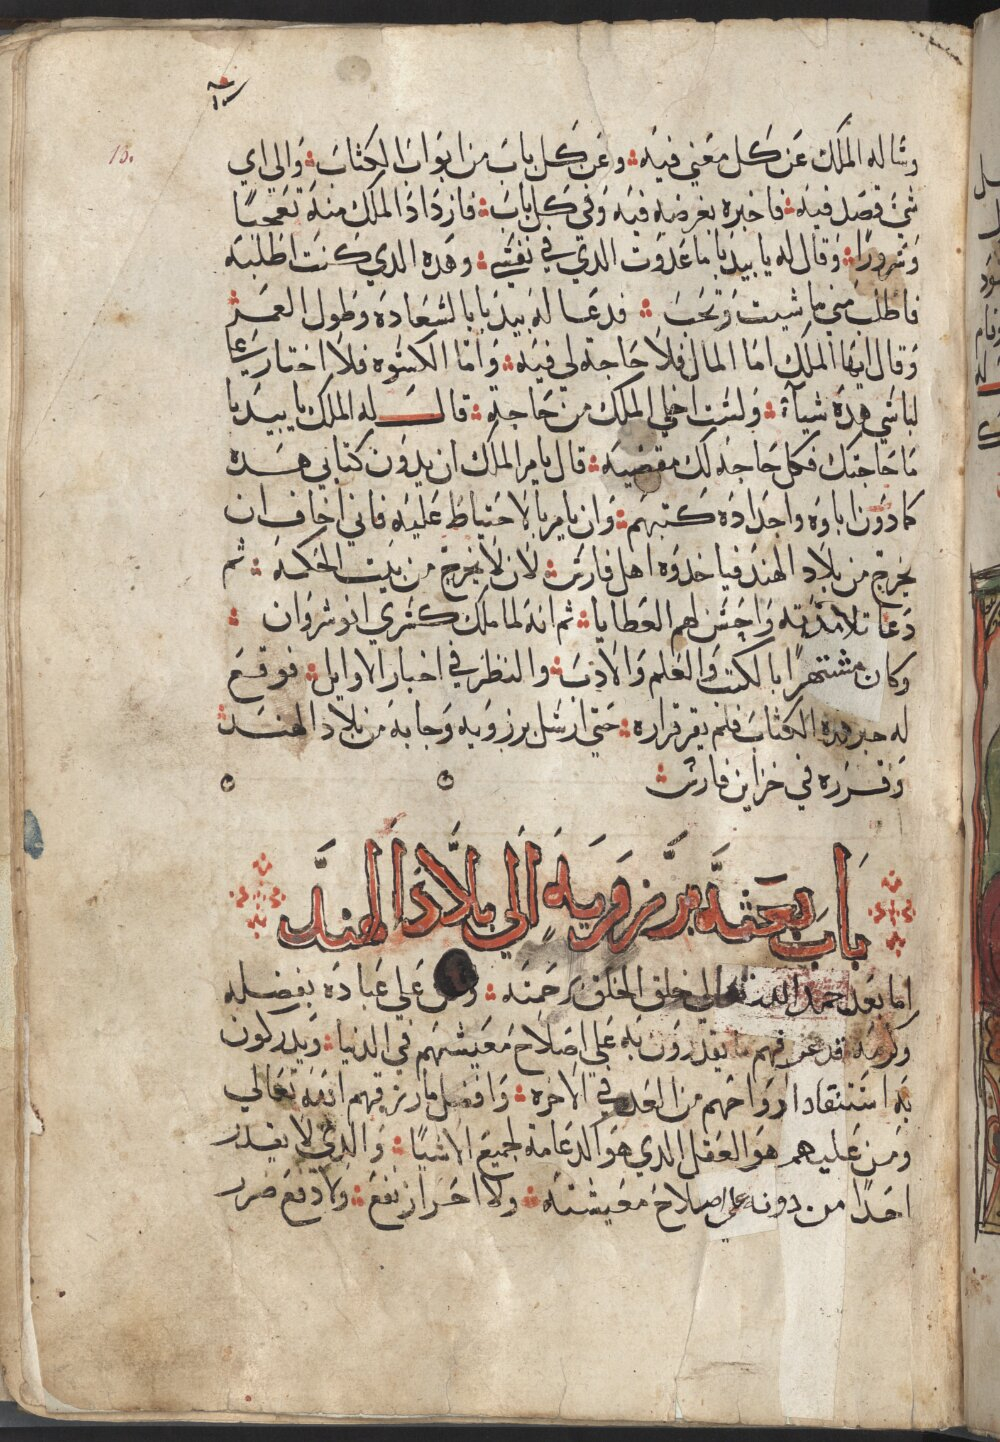 15.
وساله الملك عن كل معني فيه ؞ وعن كل باب من ابواب الكتاب ؞ والي اي
شي قصد فيه ؞ فاخبره بغرضه فيه وفي كل باب ؞ فازداد الملك منه تعجبًا
وسرورًا ؞ وقال له يا بيدبا ما عدوت الدي في نفسي ؞ وهده الدي كنت اطلبه
فاطلب مني ما شيت وتحب ؞ فدعا له بيدبا بالسعاده وطول العمر ؞
وقال ايها الملك اما المال فلا حاجة لي فيه ؞ واما الكسوه فلا اختار علي
لباسي هده شياً ؞ ولست اخلي الملك من حاجة ؞ قال له الملك يا بيدبا
ما حاجتك فكل حاجه لك مقضيه ؞ قال يامر الملك ان يدون كتابي هده
كما دون اباوه واجداده كتبهم ؞ وان يامر بالاحتياط عليه فاني اخاف ان
يخرج من بلاد الهند فياخدوه اهل فارس ؞ لان لا يخرج من بيت الحكمه ؞ ثم
دعا تلامدته واحسن لهم العطايا ؞ ثم انه لما ملك كسري انوشروان ؞
وكان مشتهرًا بالكتب والعلم والادب ؞ والنظر في اخبار الاوايل ؞ فوقع
له خبر هده الكتاب فلم يقر قراره ؞ حتي ارسل برزويه وجابه من بلاد الهند ؞
وقرره في خزاين فارس ؞
باب بعثه برزويه الي بلاد الهند
اما بعد حمد الله تعالي خلق الخلق برحمته ؞ علي عباده بفضله
وكرمه يقدرون به علي اصلاح معيشتهم في الدنيا ؞ ويدركون
به استنقاد ارواحهم من العداب في الاخره ؞ وافضل ما رزقهم الله تعالي
ومن عليهم هو العقل الدي هو الدعامة لجميع الاشيا ؞ والدي لا يقدر
احدًا من دونه علي اصلاح معيشته ؞ ولا احراز نفع ؞ ولا دفع ضرر